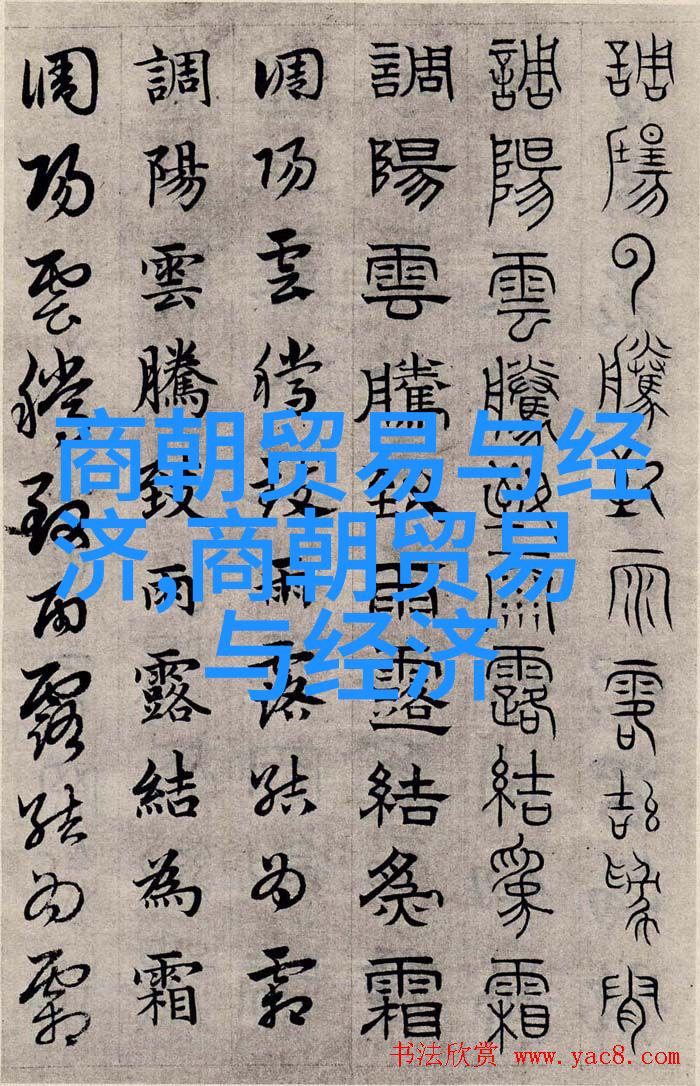 調陽云騰致雨露結為霜
調陽雲騰致雨露結為霜
調陽雲騰致雨露結為霜
調陽雲騰致雨露結為霜
調陽雲騰致雨露結為霜
調陽雲騰致雨露結為霜
商朝贸易与经
济,商朝贸易
与经济
书法欣赏 www.yac8.com